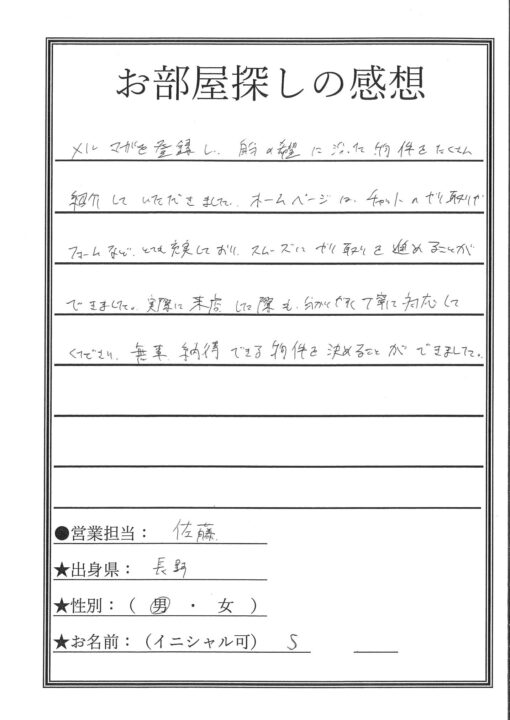 お部屋探しの感想
メルマガを登録し、自分の希望に沿った物件をたくさん
紹介していただきました。ホームページは、チャットのやり取りや
フォームなど、とても充実しており、スムーズにやり取りを進めることが
できました。実際に来店した際も、分かりやすく丁寧に対応して
くださり、無事、納得できる物件を決めることができました。
●営業担当： 佐藤
★出身県： 長野
★性別：（ 男 ・ 女 ）
★お名前：（イニシャル可） S